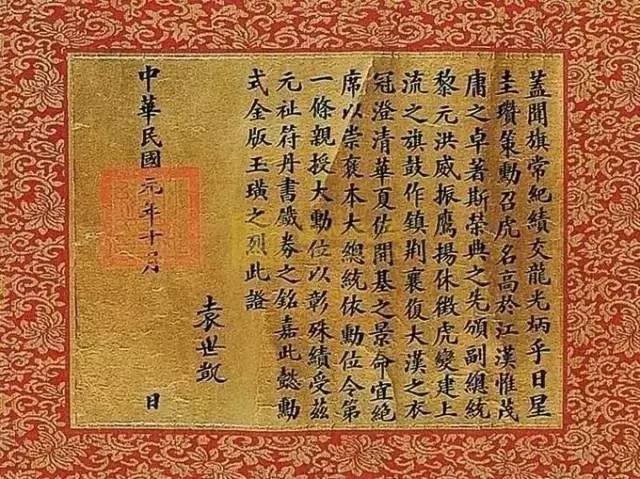 蓋聞旗常紀績交龍光炳乎日星
圭瓚策勳召虎名高於江漢惟茂
庸之卓著斯榮典之先頒副總統
黎元洪威振鷹揚休徵虎變建上
流之旗鼓作鎮荆襄復大漢之衣
冠澄清華夏佐開基之景命宜絕
席以崇褒本大總統依勳位令第
一條親授大勳位以彰殊績受茲
元祉符丹書鐵券之銘嘉此懿勳
式金版玉璜之烈此證
袁世凱
中華民國元年十月 日